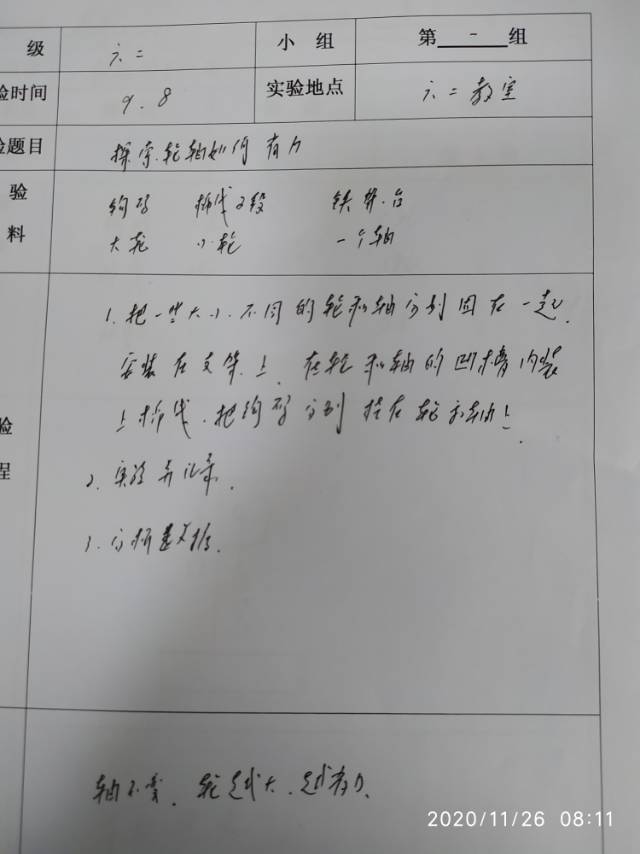 级 六二 小组 第一组
验时间 9.8 实验地点 六二教室
验题目 探索轮轴如何省力
验 钩码 棉线2段 铁架台
料 大轮 小轮 一个轴
1.把一些大小不同的轮和轴分别固在一起.
安装在支架上.在轮和轴的凹槽内装
验 上棉线.把钩码分别挂在轮和轴上.
程 2.实验并记录.
3.分析数据.
轴不变.轮越大.越省力.
2020/11/26 08:11